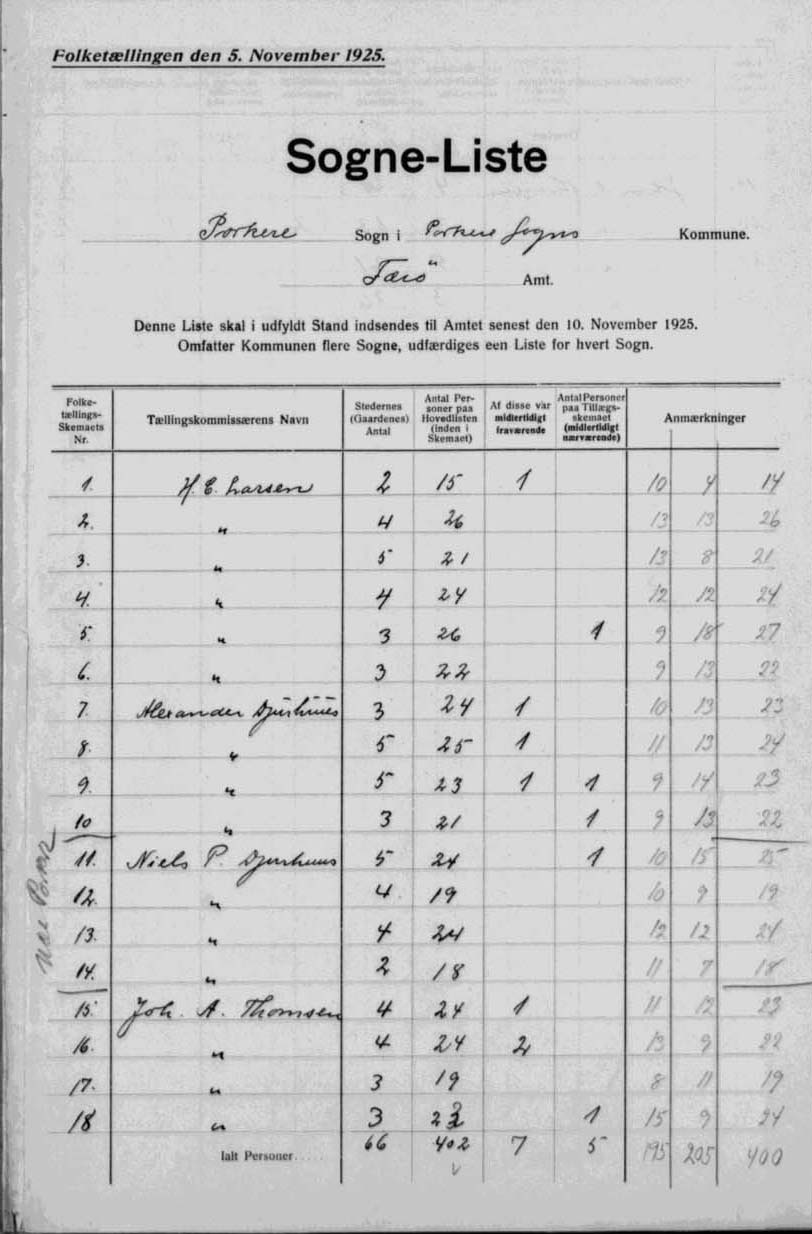 Folketællingen den 5. November 1925.
Sogne-Liste
Porkere Sogn i Porkere Sogns Kommune.
Færö Amt.
Denne Liste skal i udfyldt Stand indsendes til Amtet senest den 10. November 1925.
Omfatter Kommunen flere Sogne, udfærdiges een Liste for hvert Sogn.
Folketællings-Skemaets Nr. Tællingskommissærens Navn Stedernes (Gaardenes) Antal Antal Personer paa Hovedlisten (inden i Skemaet) Af disse var midlertidigt fraværende Antal Personer paa Tillægsskemaet (midlertidigt nærværende) Anmærkninger
1. H. E. Larsen 2 15 1 10 4 14
2. " 4 26 13 13 26
3. " 5 21 13 8 21
4. " 4 24 12 12 24
5. " 3 26 1 9 18 27
6. " 3 22 9 13 22
7. Alexander Djurhuus 3 24 1 10 13 23
8. " 5 25 1 11 13 24
9. " 5 23 1 1 9 14 23
10 " 3 21 1 9 13 22
11. Niels P. Djurhuus 5 24 1 10 15 25
12. " 4 19 10 9 19
13. " 4 24 12 12 24
14. " 2 18 11 7 18
15. Joh. A. Thomsen 4 24 1 11 12 23
16. " 4 24 2 13 9 22
17. " 3 19 8 11 19
18 " 3 23 1 15 9 24
Ialt Personer ..... 66 402 7 5 195 205 400